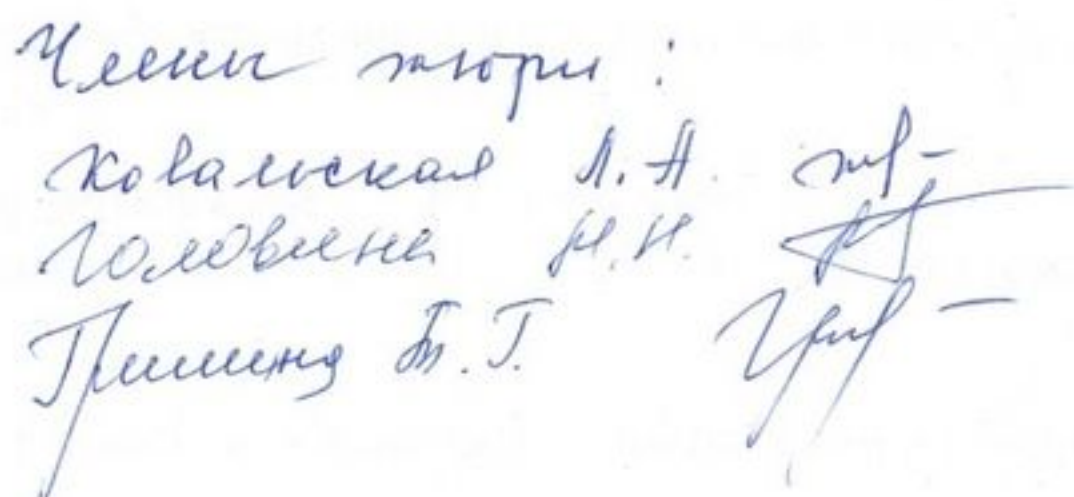 Члены жюри:
Ковальская Л.А.
Головина Н.Н.
Т.Г.